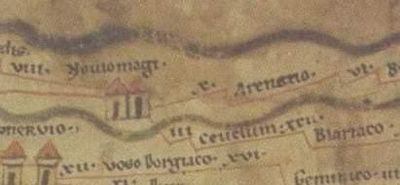 VIII. Nouiomagi. X. Arenatio. VI.
III Ceuelum. XXII. Blariaco.
XII. voso borgiaco. XVI.
Geminico. VI